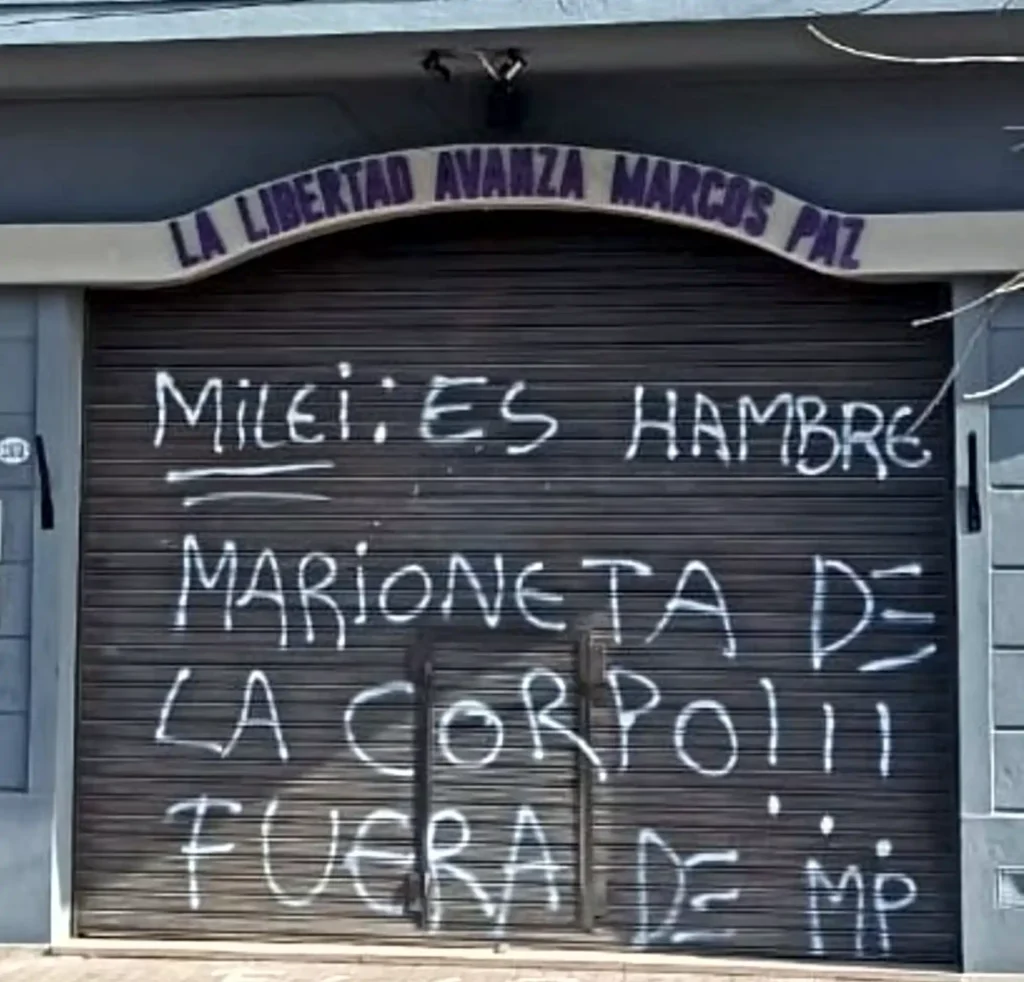 LA LIBERTAD AVANZA MARCOS PAZ
MiLEi: ES HAMBRE
MARiONETA DE
LA CORPO!!!
FUERA DE MP